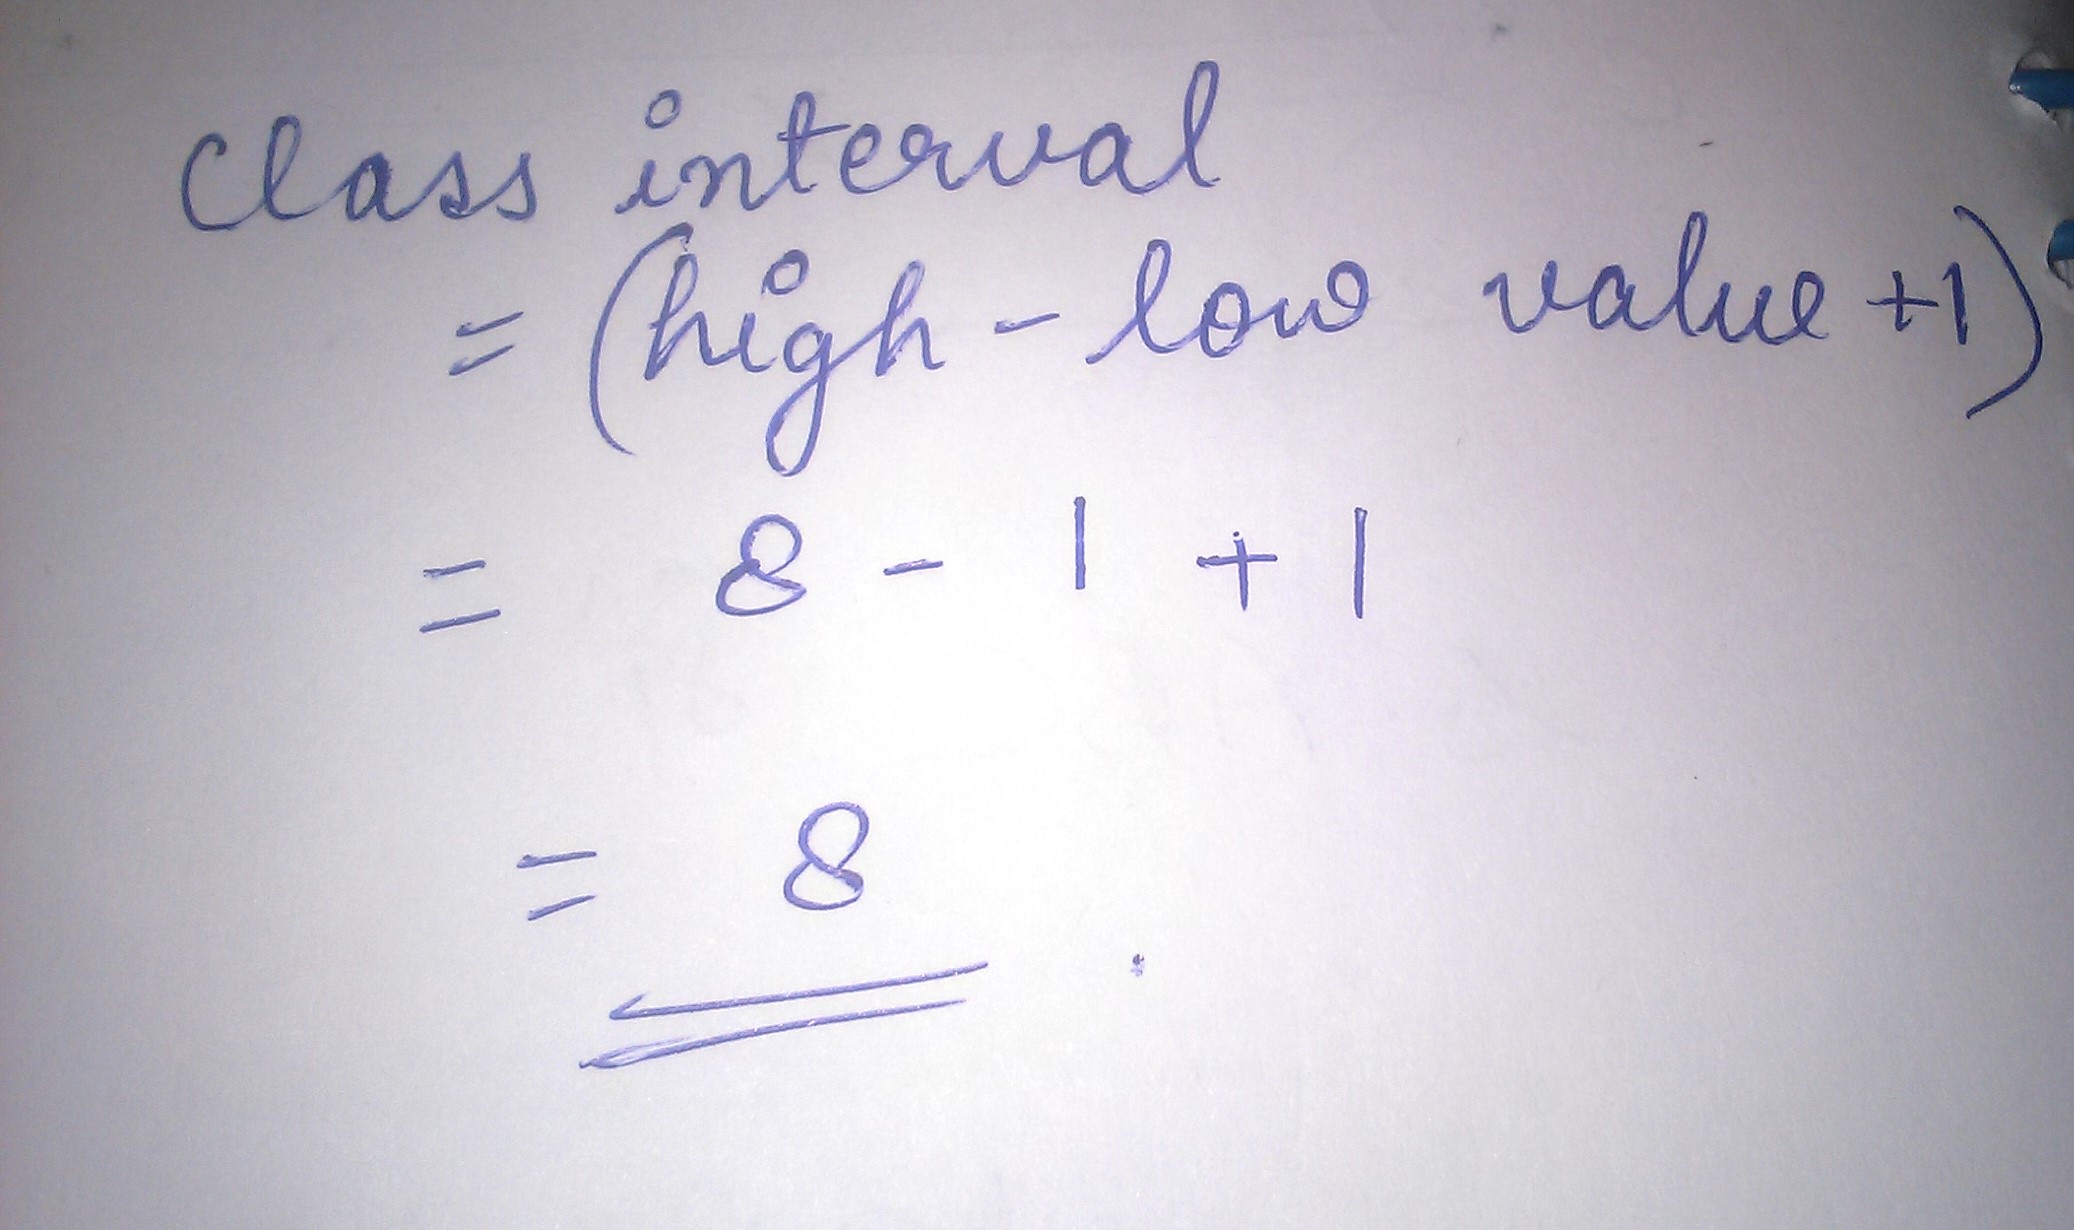 Class interval
= (high - low value +1)
= 8 - 1 + 1
= 8